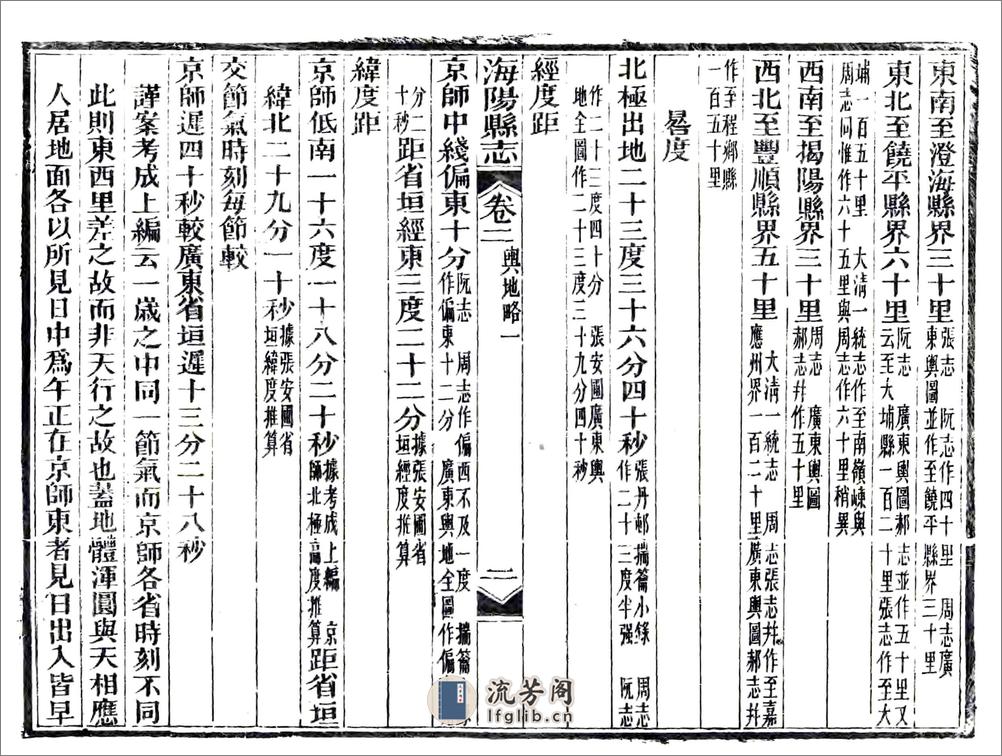 東南至澄海縣界三十里張志 阮志作四十里 周志廣東輿圖並作至饒平縣界三十里
東北至饒平縣界六十里阮志 廣東輿圖郝志並作五十里又云至大埔縣一百二十里張志作至大
埔一百五十里 大清一統志作至南嶺崠與周志同惟作六十五里與周志作六十里稍異
西南至揭陽縣界三十里周志 廣東輿圖郝志幷作五十里
西北至豐順縣界五十里大清一統志 周志張志幷作至嘉應州界一百二十里廣東輿圖郝志幷
作至程鄉縣一百五十里
晷度
北極出地二十三度三十六分四十秒張丹邨揣籥小錄 周志作二十三度半强 阮志
作二十三度四十分 張安圃廣東輿地全圖作二十三度三十九分四十秒
經度距
海陽縣志 卷二 輿地略一 二
京師中綫偏東十分阮志 周志作偏西不及一度 揣籥作偏東十二分 廣東輿地全圖作偏
分二十秒距省垣經東三度二十二分據張安圃省垣經度推算
緯度距
京師低南一十六度一十八分二十秒據考成上編 京師北極高度推算距省垣
緯北二十九分一十秒據張安圃省垣緯度推算
交節氣時刻每節較
京師遲四十秒較廣東省垣遲十三分二十八秒
謹案考成上編云一歲之中同一節氣而京師各省時刻不同
此則東西里差之故而非天行之故也蓋地體渾圓與天相應
人居地面各以所見日中爲午正在京師東者見日出入皆早
流芳阁
lfglib.cn